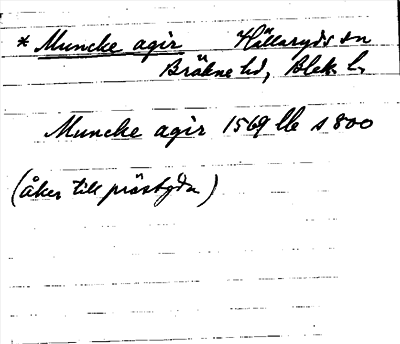 * Muncke agir Hällaryds sn
Bräkne hd, Blek. l.
Muncke agir 1569 lb s 800
(åker till prästgården)